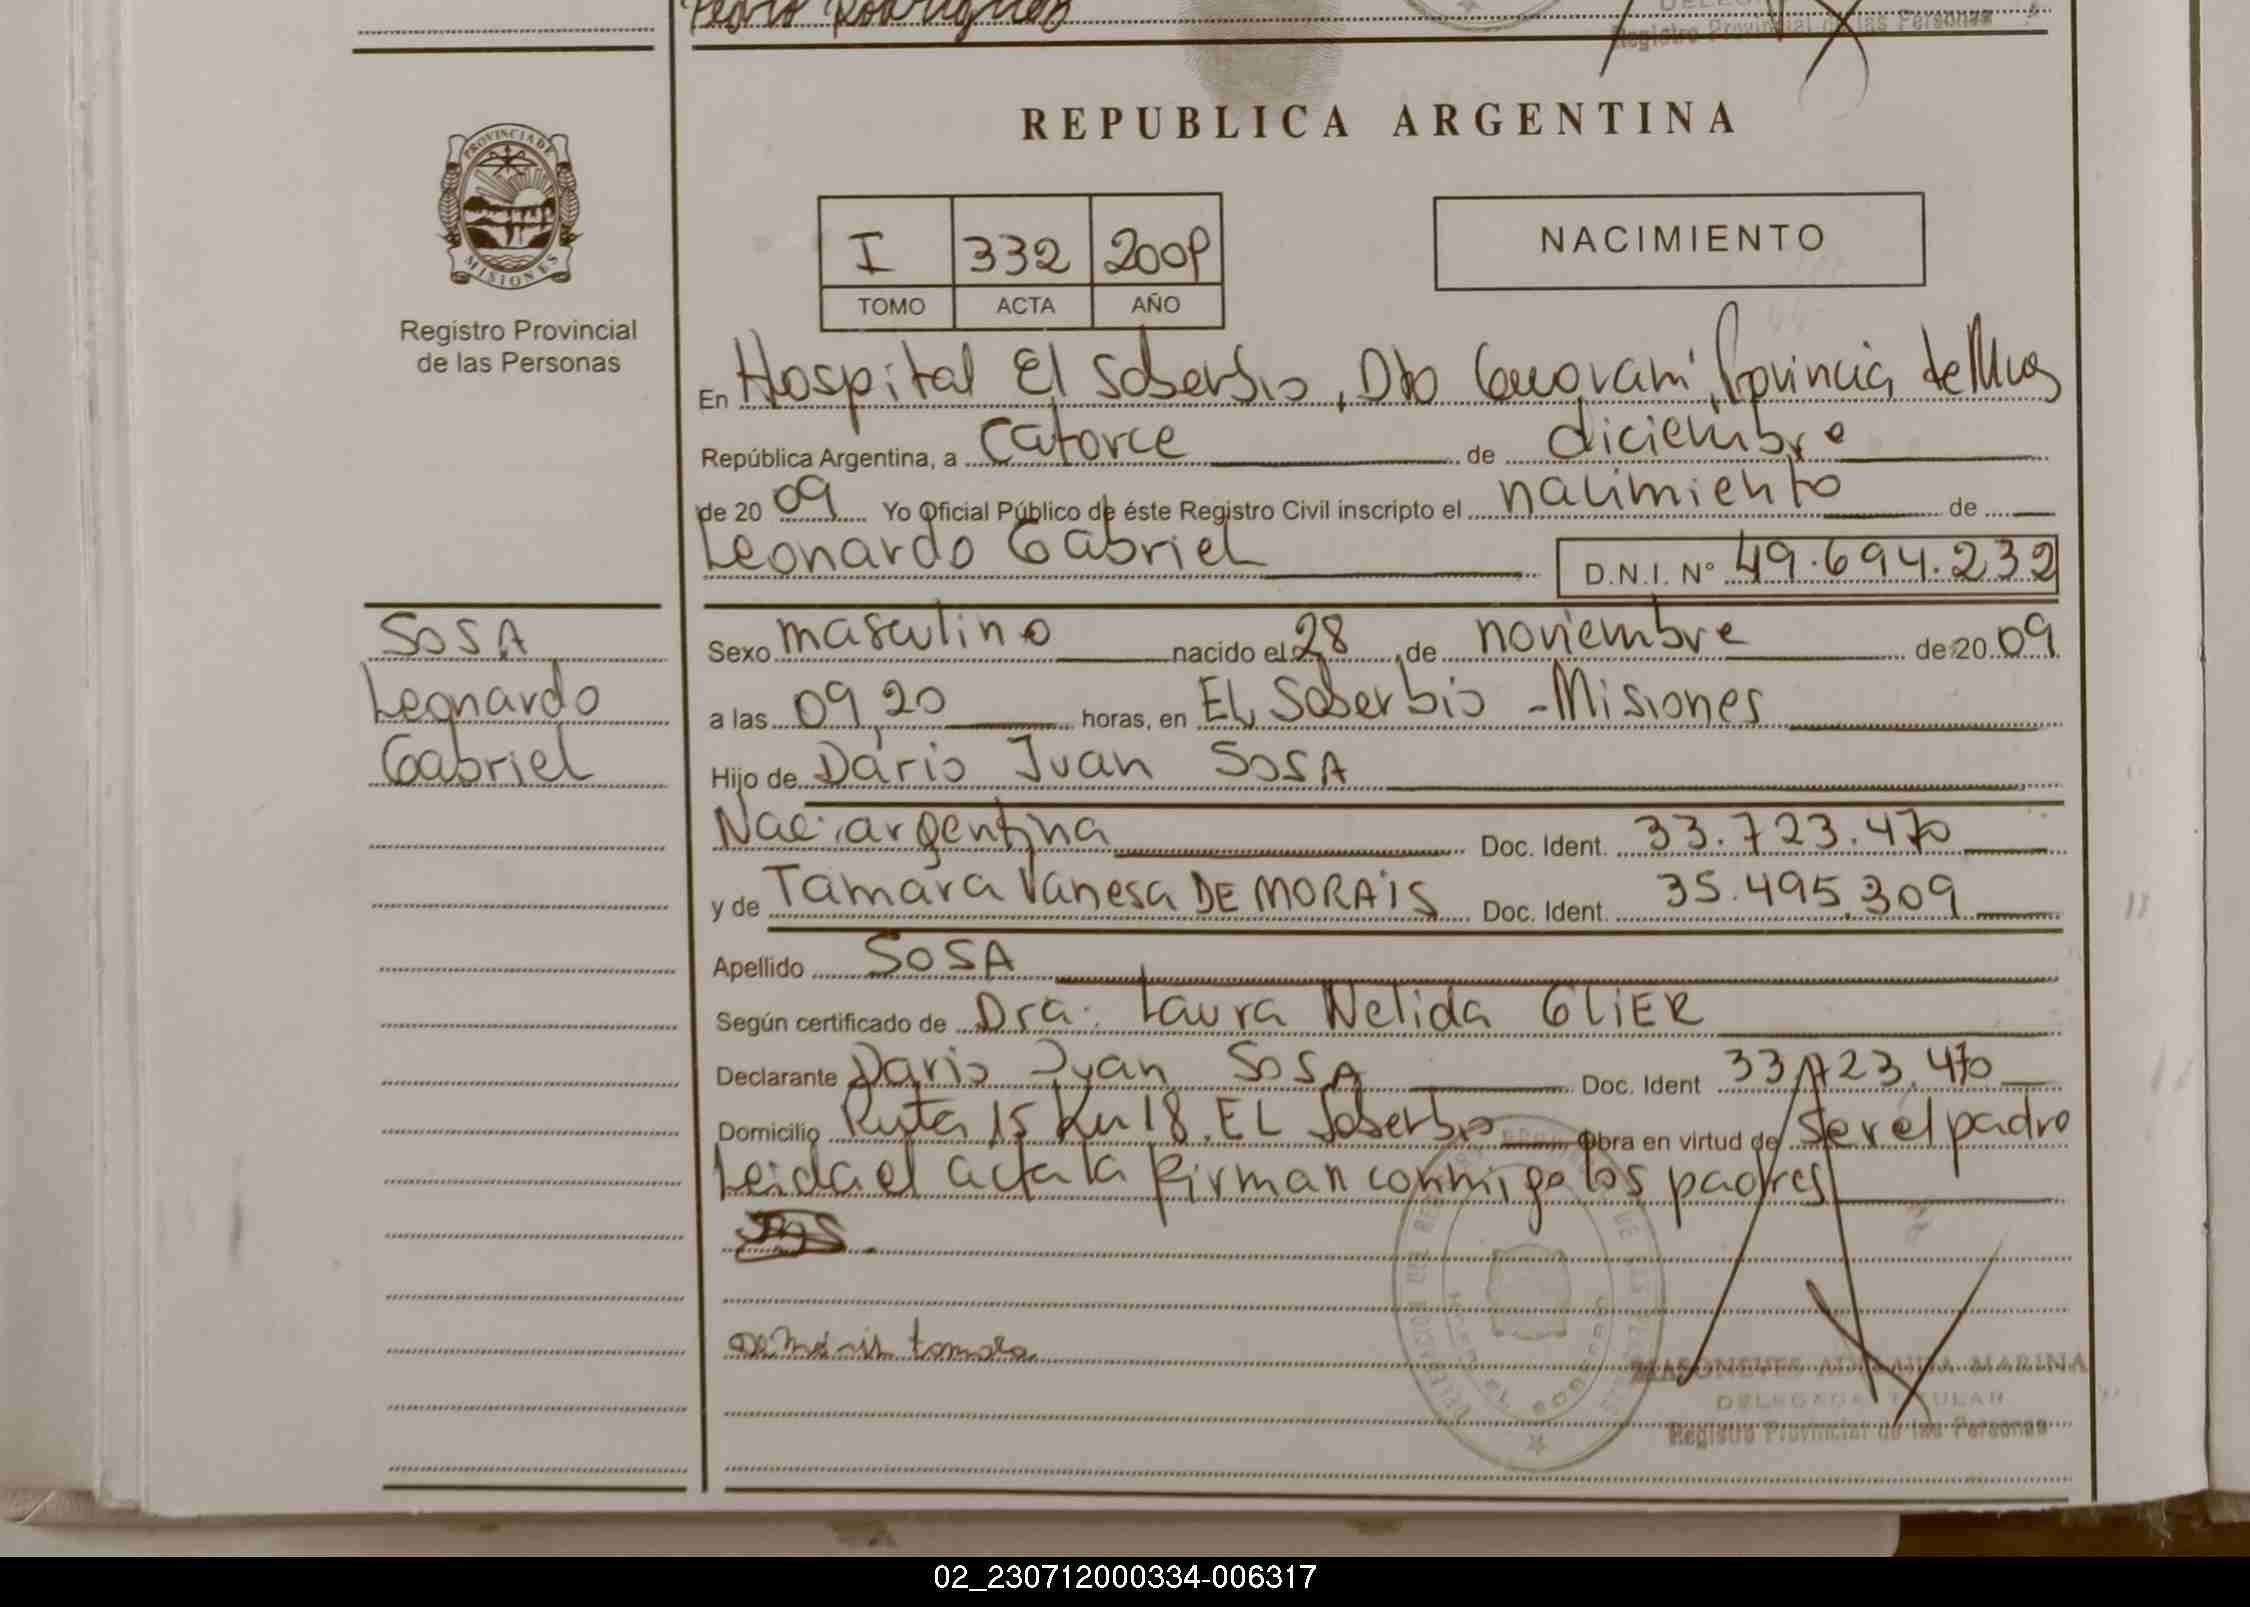 Pedro Rodriguez
Registro Provincial de las Personas
PROVINCIA DE
MISIONES
Registro Provincial
de las Personas
REPUBLICA ARGENTINA
I 332 2009
TOMO ACTA AÑO
NACIMIENTO
En Hospital El Soberbio, Dto Guarani, Provincia de Mnes
República Argentina, a Catorce de diciembre
de 20 09 Yo Oficial Público de éste Registro Civil inscripto el nacimiento de
Leonardo Gabriel D.N.I. Nº 49.694.232
SOSA
Leonardo
Gabriel
Sexo masculino nacido el 28 de noviembre de 20 09
a las 09,20 horas, en EL Soberbio - Misiones
Hijo de Dario Juan SOSA
Nac. argentina Doc. Ident. 33.723.470
y de Tamara Vanesa DE MORAIS Doc. Ident. 35.495.309
Apellido SOSA
Según certificado de Dra. Laura Nelida GLIER
Declarante Dario Juan SOSA Doc. Ident 33.723.470
Domicilio Ruta 15 Km 18. EL Soberbio Obra en virtud de Ser el padre
Leida el acta la firman conmigo los padres
De Morais tamara
ADELAIDA MARINA
DELEGADA TITULAR
Registro Provincial de las Personas
02_230712000334-006317